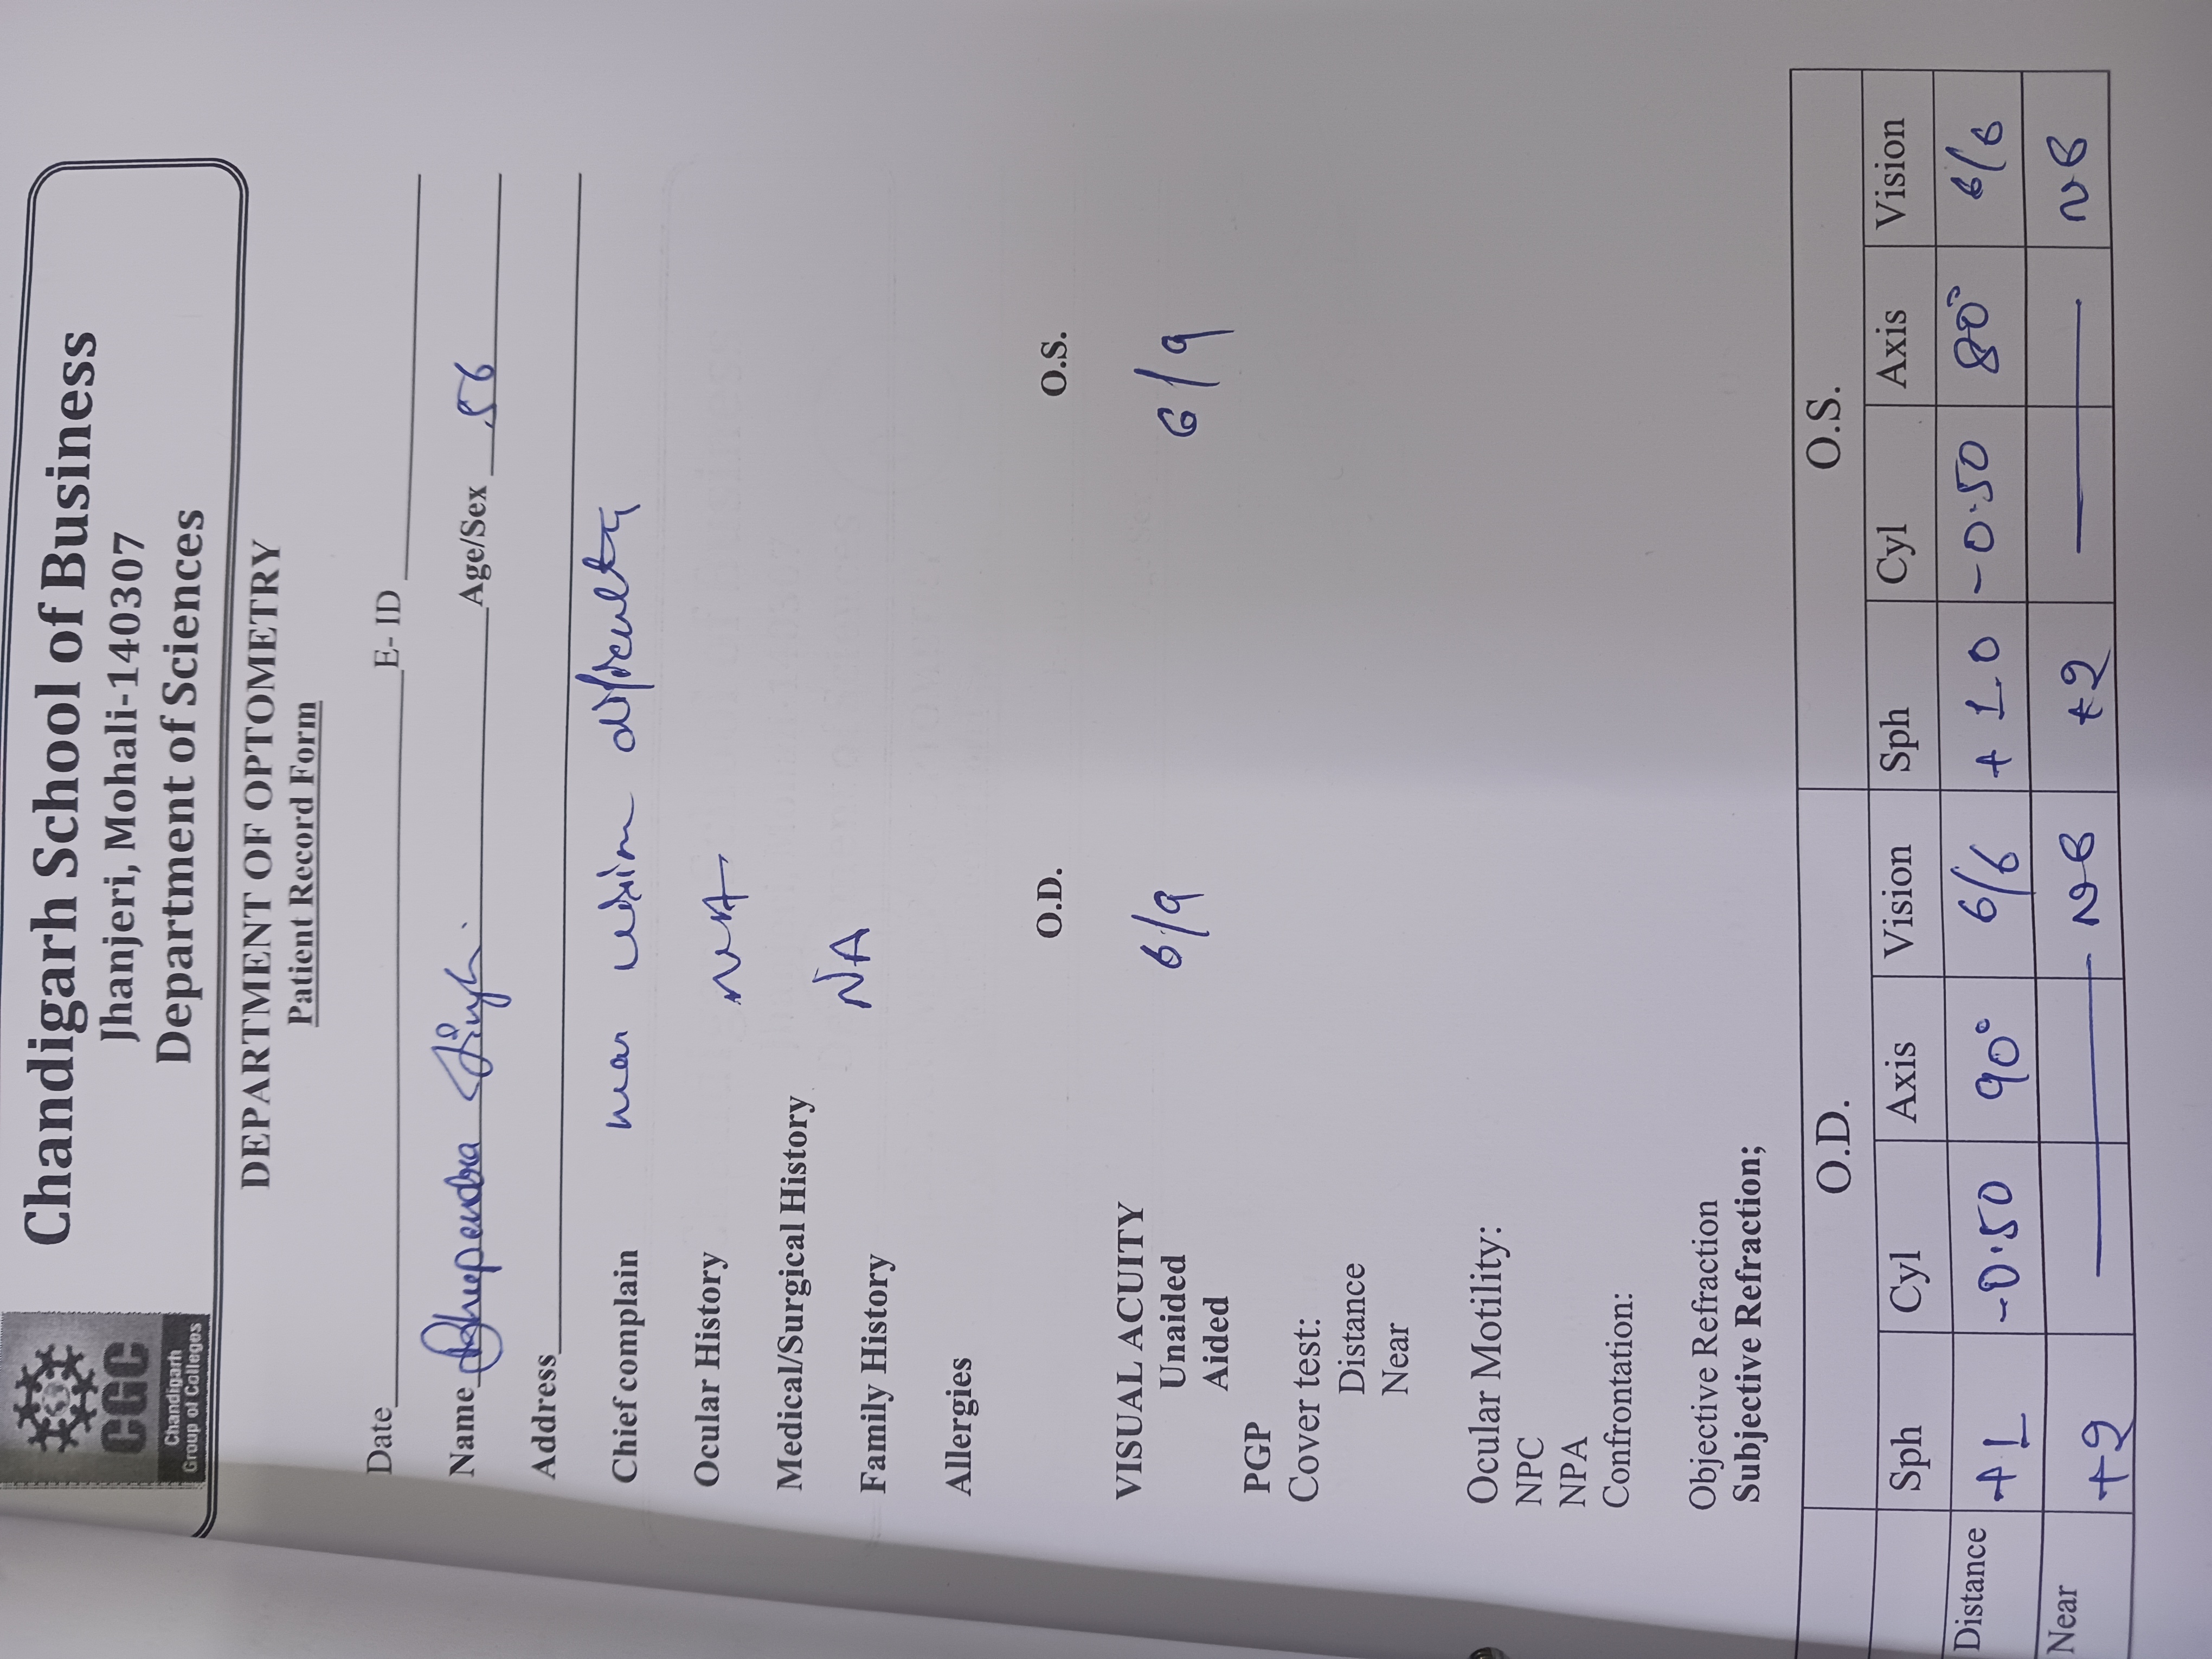 CGC
Chandigarh
Group of Colleges
Chandigarh School of Business
Jhanjeri, Mohali-140307
Department of Sciences
DEPARTMENT OF OPTOMETRY
Patient Record Form
Date E- ID
Name Bhupendra Singh. Age/Sex 56
Address
Chief complain near vision difficulty
Ocular History NA
Medical/Surgical History
NA
Family History
Allergies
O.D. O.S.
VISUAL ACUITY
Unaided 6/9 6/9
Aided
PGP
Cover test:
Distance
Near
Ocular Motility:
NPC
NPA
Confrontation:
Objective Refraction
Subjective Refraction;
O.D. O.S.
Sph Cyl Axis Vision Sph Cyl Axis Vision
Distance +1 -0.50 90° 6/6 +1.0 -0.50 80° 6/6
Near +2 — N6 +2 — N6